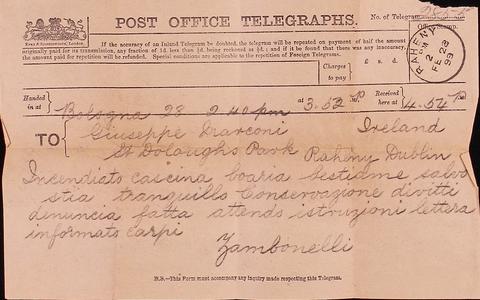 POST OFFICE TELEGRAPHS.
No. of Telegram
If the accuracy of an Inland Telegram be doubted, the telegram will be repeated on payment of half the amount
originally paid for its transmission, any fraction of 1d. less than ½d. being reckoned as ½d.; and if it be found that there was any inaccuracy,
the amount paid for repetition will be refunded. Special conditions are applicable to the repetition of Foreign Telegrams.
RAHENY
PM
2
FE 28
99
Charges to pay £ s. d.
Handed in at Bologna 28 2.40 pm at 3.52 P. Received here at 4.54 P.
TO Giuseppe Marconi Ireland
St Doloughs Park Raheny Dublin
Incendiato cascina boaria bestiame salvo
stia tranquillo Conservazione divitti
denuncia fatta attendo istruzioni lettera
informato carpi
Zambonelli
N.B.—This Form must accompany any inquiry made respecting this Telegram.